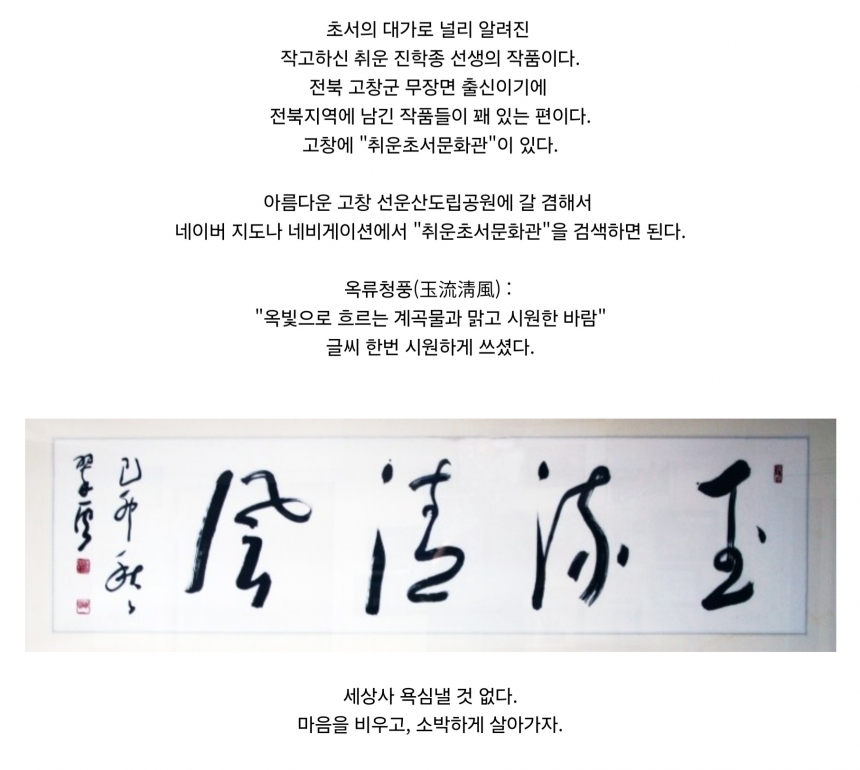 초서의 대가로 널리 알려진
작고하신 취운 진학종 선생의 작품이다.
전북 고창군 무장면 출신이기에
전북지역에 남긴 작품들이 꽤 있는 편이다.
고창에 "취운초서문화관"이 있다.
아름다운 고창 선운산도립공원에 갈 겸해서
네이버 지도나 네비게이션에서 "취운초서문화관"을 검색하면 된다.
옥류청풍(玉流淸風) :
"옥빛으로 흐르는 계곡물과 맑고 시원한 바람"
글씨 한번 시원하게 쓰셨다.
玉流清風
己卯秋
翠雲
세상사 욕심낼 것 없다.
마음을 비우고, 소박하게 살아가자.